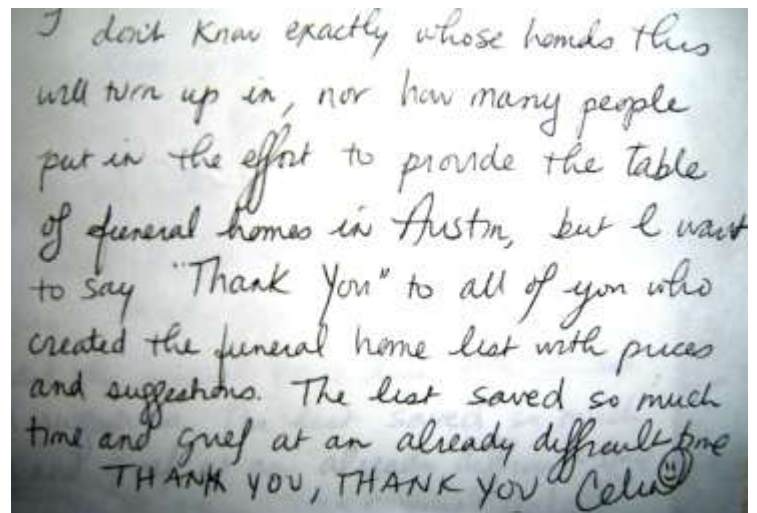 I don't know exactly whose hands this
will turn up in, nor how many people
put in the effort to provide the table
of funeral homes in Austin, but I want
to say "Thank You" to all of you who
created the funeral home list with prices
and suggestions. The list saved so much
time and grief at an already difficult time
THANK YOU, THANK YOU Celia